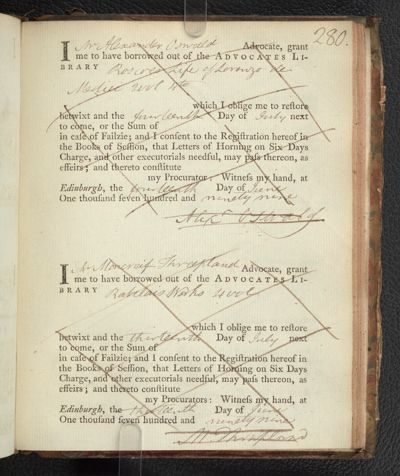 280.
I Mr Alexander Oswald Advocate, grant
me to have borrowed out of the ADVOCATES LI-
BRARY Roscoe's Life of Lorenzo de
Medici 4to
which I oblige me to reſtore
betwixt and the fourteenth Day of July next
to come, or the Sum of
in caſe of Failzie; and I conſent to the Regiſtration hereof in
the Books of Seſſion, that Letters of Horning on Six Days
Charge, and other executorials needful, may paſs thereon, as
effeirs; and thereto conſtitute
my Procurator: Witneſs my hand, at
Edinburgh, the fourteenth Day of June
One thouſand ſeven hundred and ninety nine
Alexr Oswald
I Mr Moncreif Threipland Advocate, grant
me to have borrowed out of the ADVOCATES LI-
BRARY Rabelais Works 4 vol
which I oblige me to reſtore
betwixt and the thirteenth Day of July next
to come, or the Sum of
in caſe of Failzie; and I conſent to the Regiſtration hereof in
the Books of Seſſion, that Letters of Horning on Six Days
Charge, and other executorials needful, may paſs thereon, as
effeirs; and thereto conſtitute
my Procurator: Witneſs my hand, at
Edinburgh, the thirteenth Day of June
One thouſand ſeven hundred and ninety nine
M Threipland